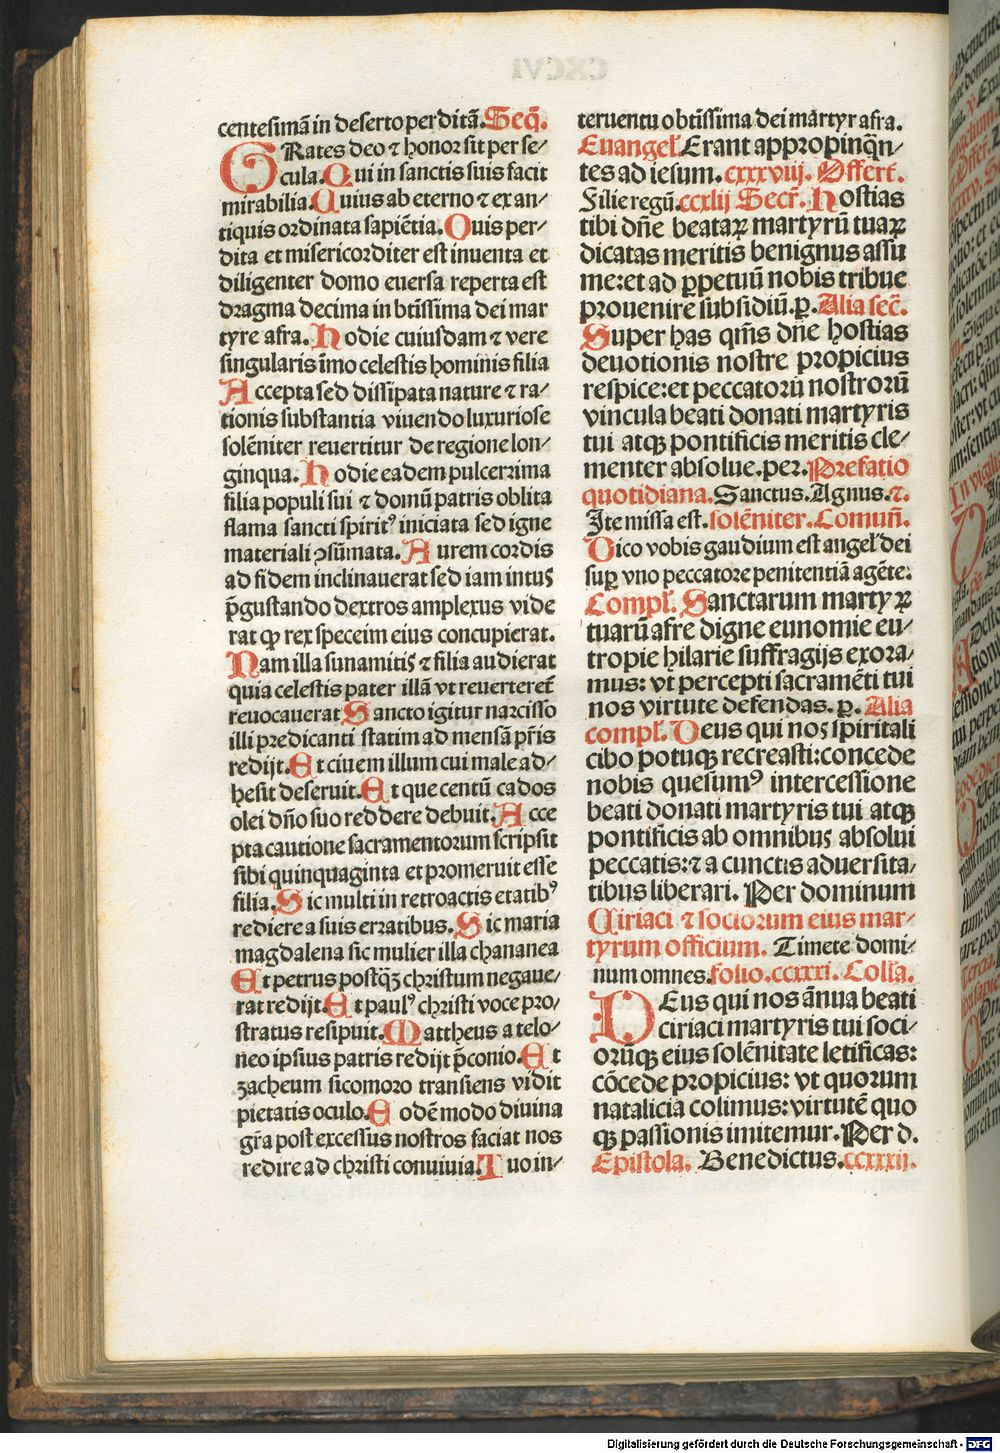 centesimā in deserto perditā. Seq̄.
GRates deo ⁊ honor sit per se⸗
cula. Qui in sanctis suis facit
mirabilia. Cuius ab eterno ⁊ ex an⸗
tiquis ordinata sapiētia. Ouis per⸗
dita et misericorditer est inuenta et
diligenter domo euersa reperta est
dragma decima in btīssima dei mar
tyre afra. Hodie cuiusdam ⁊ vere
singularis īmo celestis hominis filia
Accepta sed dissipata nature ⁊ ra⸗
tionis substantia viuendo luxuriose
solēniter reuertitur de regione lon⸗
ginqua. Hodie eadem pulcerrima
filia populi sui ⁊ domū patris oblita
flama sancti spiritꝰ iniciata sed igne
materiali ↄsūmata. Aurem cordis
ad fidem inclinauerat sed iam intus
p̄gustando dextros amplexus vide
rat ꝙ rex speceim eius concupierat.
Nam illa sunamitis ⁊ filia audierat
quia celestis pater illā vt reuerteret̄
reuocauerat Sancto igitur narcisso
illi predicanti statim ad mensā pr̄is
redijt. Et ciuem illum cui male ad⸗
hesit deseruit. Et que centū cados
olei dn̄o suo reddere debuit. Acce
pta cautione sacramentorum scripsit
sibi quinquaginta et promeruit esse
filia. Sic multi in retroactis etatibꝰ
rediere a suis erratibus. Sic maria
magdalena sic mulier illa chananea
Et petrus postq̄ꝫ christum negaue⸗
rat redijt. Et paulꝰ christi voce pro⸗
stratus resipuit. Mattheus a telo⸗
neo ipsius patris redijt p̄conio. Et
zacheum sicomoro transiens vidit
pietatis oculo. Eodē modo diuina
gr̄a post excessus nostros faciat nos
redire ad christi conuiuia. Tuo in⸗
teruentu obtīssima dei martyr afra.
Euangel̄. Erant appropinq̄n⸗
tes ad iesum. cxxxviij. Offert.
Filie regū. ccxlij Secr̄. Hostias
tibi dn̄e beataꝝ martyrū tuaꝝ
dicatas meritis benignus assu
me: et ad ꝑpetuū nobis tribue
prouenire subsidiū. ꝑ. Alia sec̄.
Super has qm̄s dn̄e hostias
deuotionis nostre propicius
respice: et peccatorū nostrorū
vincula beati donati martyris
tui atqꝫ pontificis meritis cle⸗
menter absolue. per. Prefatio
quotidiana. Sanctus. Agnus. ⁊.
Ite missa est. solēniter. Comun̄.
Dico vobis gaudium est angel̄ dei
suꝑ vno peccatore penitentiā agēte.
Compl̄. Sanctarum martyꝝ
tuarū afre digne eunomie eu⸗
tropie hilarie suffragijs exora⸗
mus: vt percepti sacramēti tui
nos virtute defendas. ꝑ. Alia
compl̄. Deus qui nos spiritali
cibo potuqꝫ recreasti: concede
nobis quesumꝰ intercessione
beati donati martyris tui atqꝫ
pontificis ab omnibus absolui
peccatis: ⁊ a cunctis aduersita⸗
tibus liberari. Per dominum
Ciriaci ⁊ sociorum eius mar⸗
tyrum officium. Timete domi⸗
num omnes. folio. ccxxxi. Coll̄a.
DEus qui nos ānua beati
ciriaci martyris tui soci⸗
orūqꝫ eius solēnitate letificas:
cōcede propicius: vt quorum
natalicia colimus: virtutē quo
qꝫ passionis imitemur. Per d.
Epistola. Benedictus. ccxxxij.
Digitalisierung gefördert durch die Deutsche Forschungsgemeinschaft - DFG